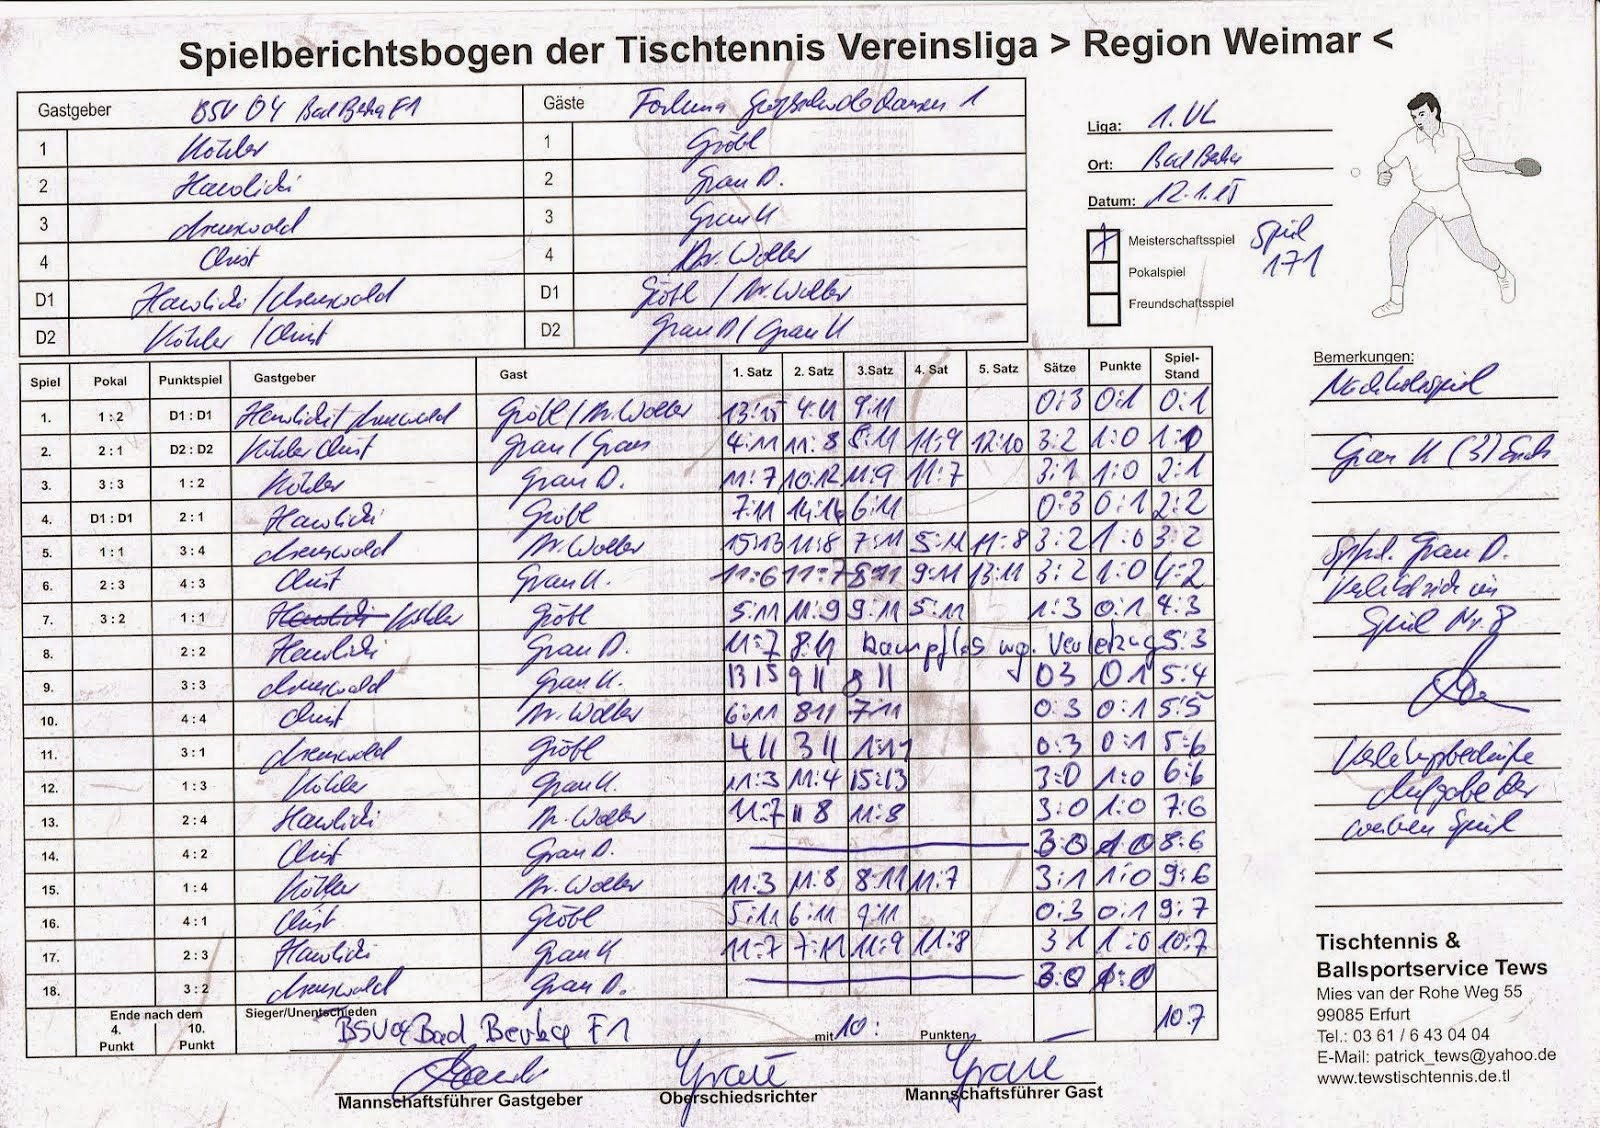 Spielberichtsbogen der Tischtennis Vereinsliga > Region Weimar <
Gastgeber BSV 04 Bad Berka F1 Gäste Fortuna 1
1 Köhler 1 Gröbl
2 Hawlicki 2 Grau D.
3 3 Grau K
4 Christ 4 Dr. Wolter
D1 Hawlicki / D1 Gröbl / Dr. Wolter
D2 Köhler / Christ D2 Grau D / Grau K
Liga: 1. VL
Ort: Bad Berka
Datum: 12.1.15
X Meisterschaftsspiel Spiel 171
Pokalspiel
Freundschaftsspiel
Spiel Pokal Punktspiel Gastgeber Gast 1. Satz 2. Satz 3.Satz 4. Sat 5. Satz Sätze Punkte Spiel-Stand
1. 1 : 2 D1 : D1 Hawlicki / Gröbl / Dr. Wolter 13:15 4:11 9:11 0:3 0:1 0:1
2. 2 : 1 D2 : D2 Köhler Christ Grau / Grau 4:11 11:8 8:11 11:9 12:10 3:2 1:0 1:1
3. 3 : 3 1 : 2 Köhler Grau D. 11:7 10:12 11:9 11:7 3:1 1:0 2:1
4. D1 : D1 2 : 1 Hawlicki Gröbl 7:11 14:16 6:11 0:3 0:1 2:2
5. 1 : 1 3 : 4 Dr. Wolter 15:13 11:8 7:11 5:11 11:8 3:2 1:0 3:2
6. 2 : 3 4 : 3 Christ Grau K. 11:6 11:7 8:11 9:11 13:11 3:2 1:0 4:2
7. 3 : 2 1 : 1 Hawlicki Köhler Gröbl 5:11 11:9 9:11 5:11 1:3 0:1 4:3
8. 2 : 2 Hawlicki Grau D. 11:7 8:11 kampflos wg. Verletzung 5:3
9. 3 : 3 Grau K. 13 15 9 11 8 11 0 3 0 1 5:4
10. 4 : 4 Christ Dr. Wolter 6:11 8:11 7:11 0:3 0:1 5:5
11. 3 : 1 Gröbl 4 11 3 11 1:11 0:3 0:1 5:6
12. 1 : 3 Köhler Grau K. 11:3 11:4 15:13 3:0 1:0 6:6
13. 2 : 4 Hawlicki Dr. Wolter 11:7 11 8 11:8 3:0 1:0 7:6
14. 4 : 2 Christ Grau D. 3 0 1 0 8:6
15. 1 : 4 Köhler Dr. Wolter 11:3 11:8 8:11 11:7 3:1 1:0 9:6
16. 4 : 1 Christ Gröbl 5:11 6:11 7:11 0:3 0:1 9:7
17. 2 : 3 Hawlicki Grau K 11:7 7:11 11:9 11:8 3 1 1:0 10:7
18. 3 : 2 Grau D. 3:0 1:0
Ende nach dem
4. Punkt 10. Punkt
Sieger/Unentschieden BSV 04 Bad Berka F1 mit 10: Punkten 10:7
Mannschaftsführer Gastgeber
Grau
Oberschiedsrichter
Grau
Mannschaftsführer Gast
Bemerkungen:
Nachholspiel
Grau K (3) Ersatz
Grau D.
verletzt sich im
Spiel Nr. 8
Verletzungsbedingte
Aufgabe der
weiteren Spiele
Tischtennis &
Ballsportservice Tews
Mies van der Rohe Weg 55
99085 Erfurt
Tel.: 03 61 / 6 43 04 04
E-Mail: patrick_tews@yahoo.de
www.tewstischtennis.de.tl